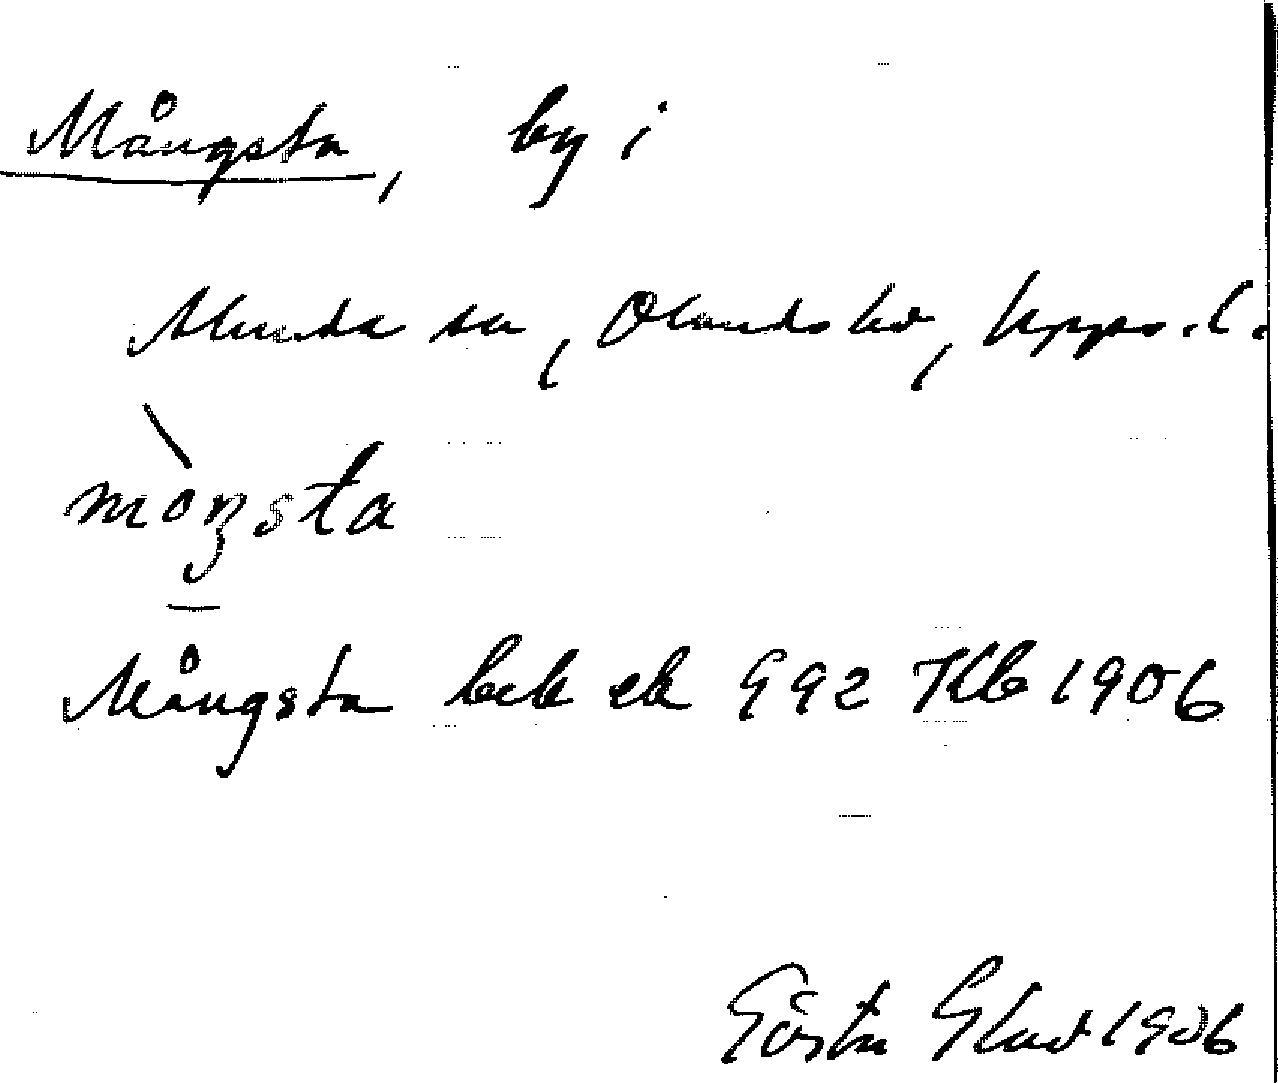 Mångsta, by i
Alunda sn, Olands hd, Upps. l.
mòŋsta
Mångsta beb ek G 92 Kb 1906
Gösta Glad 1906